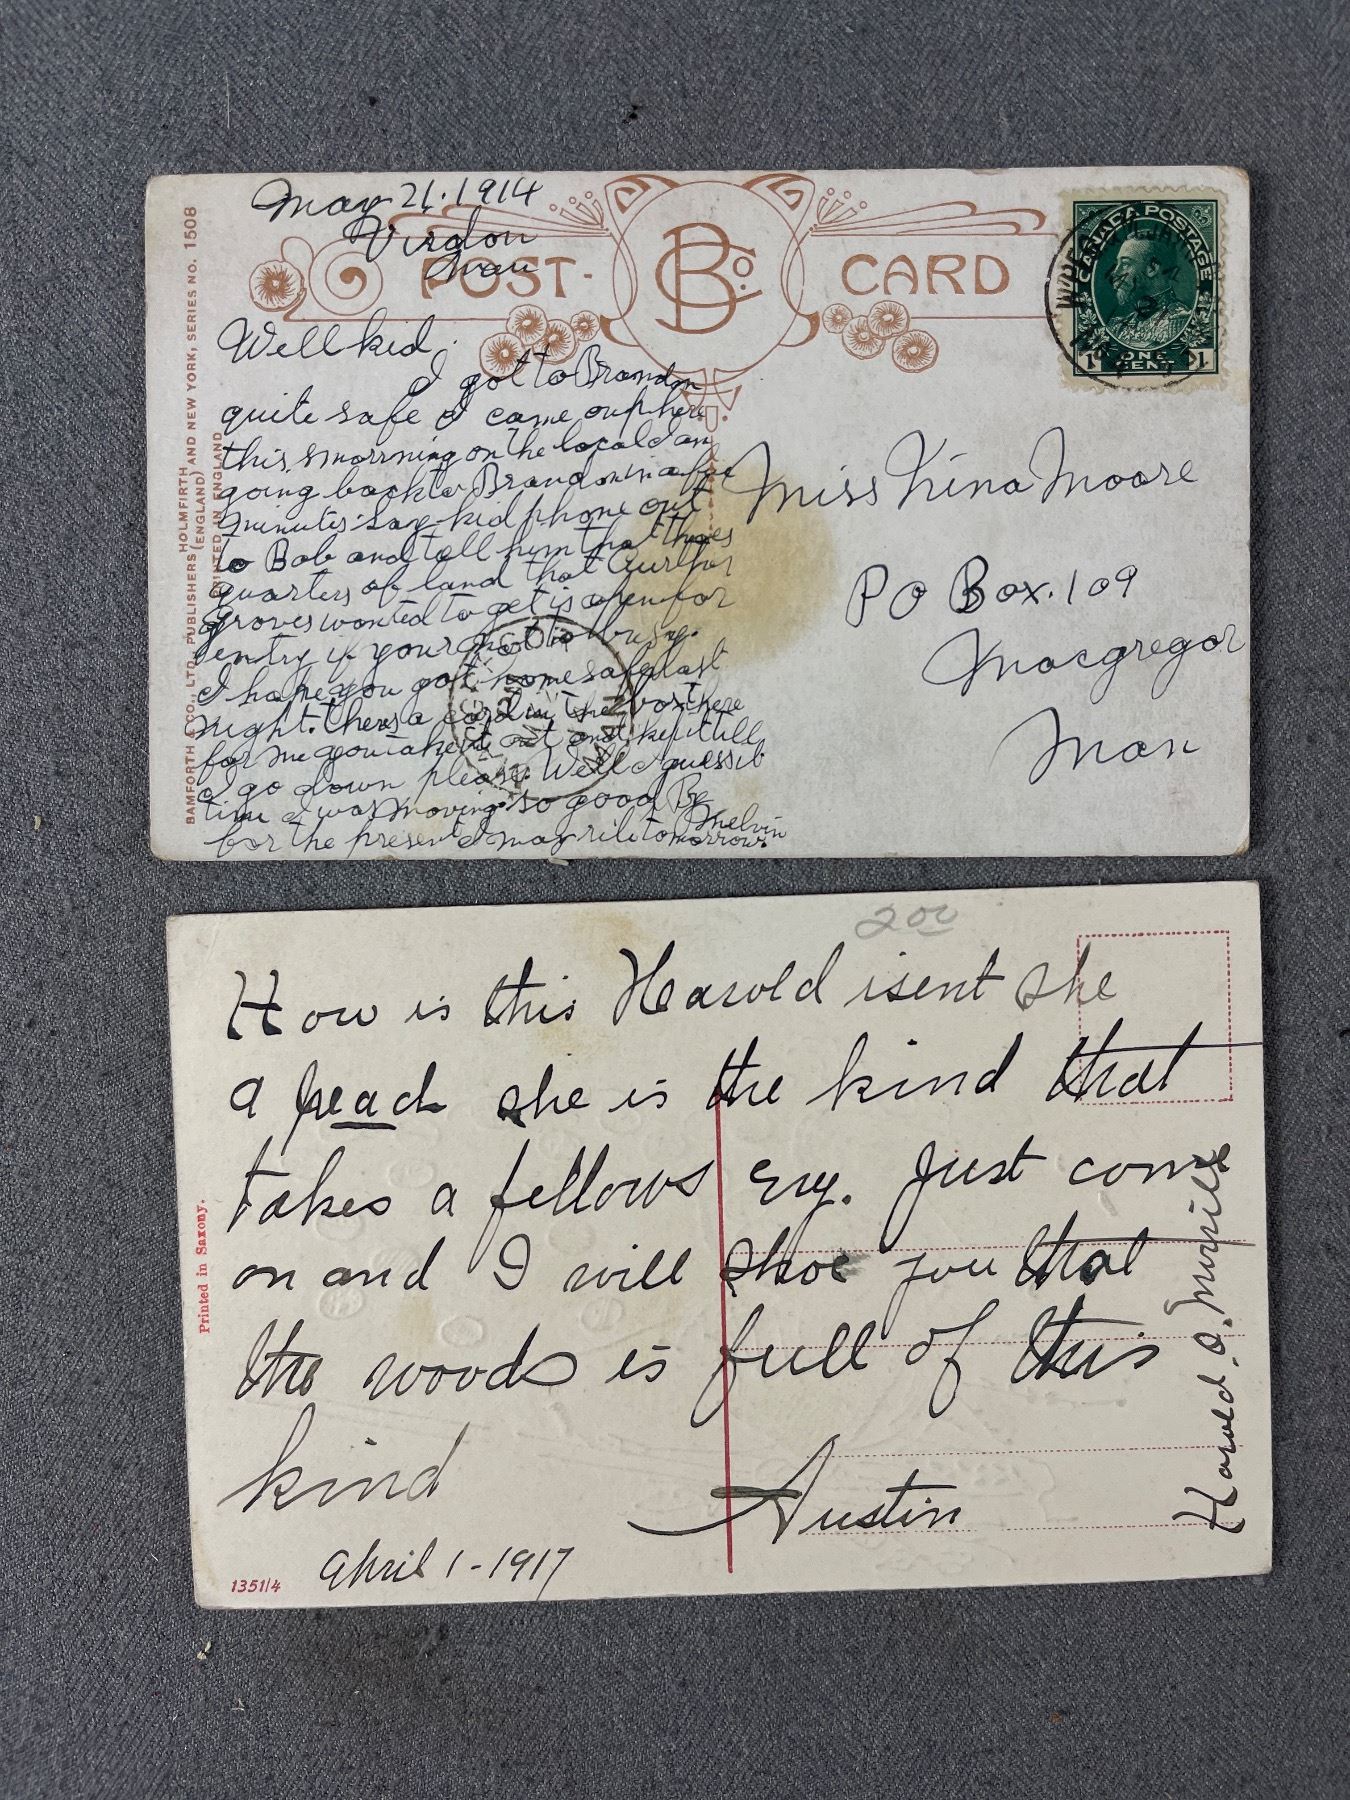 May 21. 1914
Virdon
Man
POST-
B Co.
CARD
CANADA POSTAGE
1 ONE CENT 1
BAMFORTH & CO., LTD., PUBLISHERS HOLMFIRTH (ENGLAND) AND NEW YORK, SERIES NO. 1508
PRINTED IN ENGLAND
Well kid.
I got to Brandon
quite safe I came up here
this morrning on the local I am
going back to Brandon in a few
minutes. Say kid phone out
to Bob and tell him that
quarters of land that
Groves wanted to get is open for
entry if your not to busy.
I hope you got home safe last
night. theres a card in the box there
for me you take it out and keep it till
I go down please. Well I guess it
time I was moving so good By
for the present I may rite tomorrow.
Melvin
Miss Kina Moore
PO Box. 109
Macgregor
Man
MAN
2 00
How is this Harold isent she
a peach she is the kind that
takes a fellows eny. Just come
on and I will shoe you that
the woods is full of this
kind
Austin
April 1-1917
Harold. O. Murrills
Printed in Saxony.
1351/4